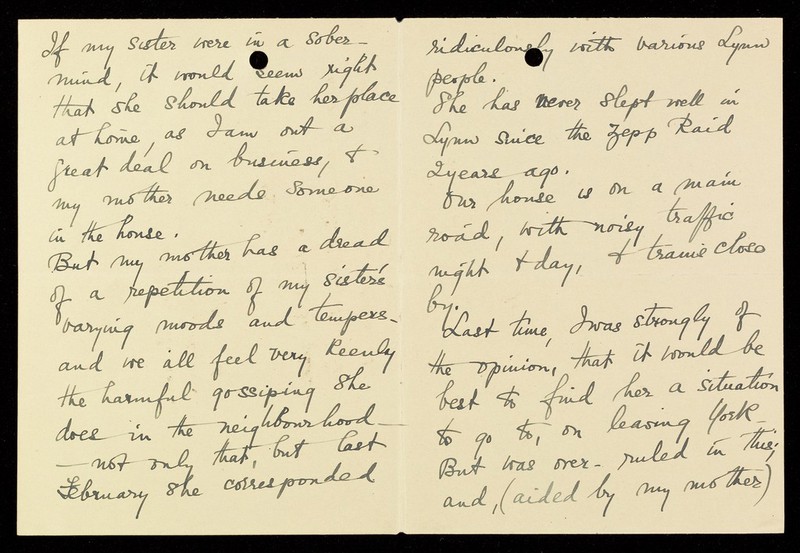 If my sister were in a sober-
mind, it would seem right
that she should take her place
at home, as I am out a
great deal on business, &
my mother needs someone
in the house.
But my mother has a dread
of a repetition of my sister's
varying moods and tempers-
and we all feel very keenly
the harmful gossiping she
does in the neighbourhood-
- not only that, but last
February she corresponded
ridiculously with various Lynn
people.
She has never slept well in
Lynn since the Zepp Raid
2 years ago.
Our house is on a main
road, with noisy traffic
night & day, & trains close
by.
Last time, I was strongly of
the opinion, that it would be
best to find her a situation
to go to, on leaving York-
But was over-ruled in this;
and, (aided by my mother)